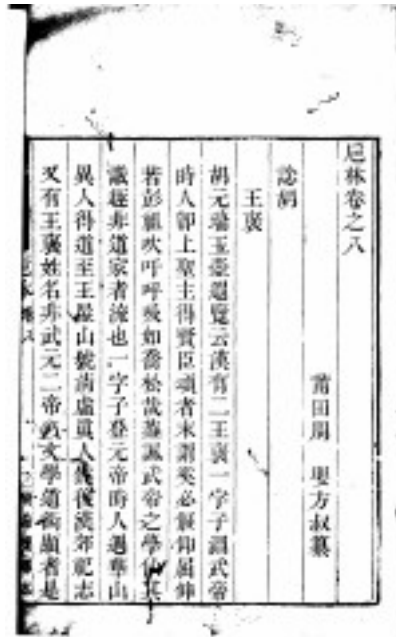 卮林卷之八
莆田周 嬰方叔纂
諗胡
王褒
胡元瑞玉壺遐覽云漢有二王褒一字子淵武帝
時人卽上聖主得賢臣頌者末謂奚必偃仰屈伸
若彭祖吹呼呼吸如喬松哉蓋諷武帝之學仙其
識趣非道家者流也一字子登元帝時人遇華山
異人得道至王屋山號淸虛眞人後漢郊祀志
又有王褒姓名非武元二帝文學道術顯者是